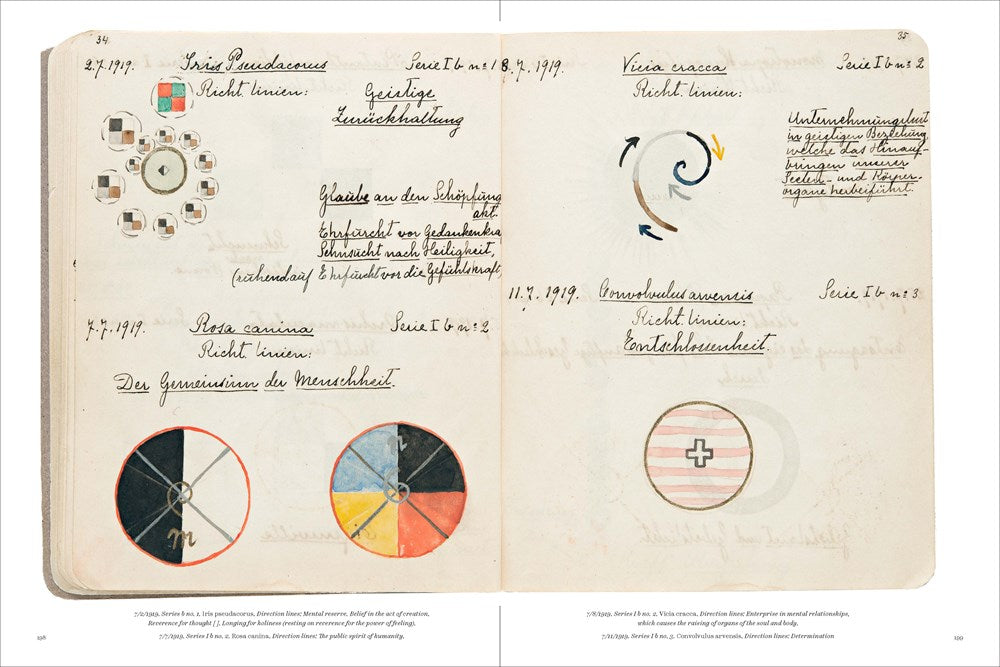 34
2.7.1919. Iris Pseudacorus Serie I b nº 1
Richt. linien: Geistige
Zurückhaltung
Glaube an den Schöpfung
akt.
Ehrfurcht vor Gedankenkra
Sehnsucht nach Heiligkeit,
(ruhend auf Ehrfurcht vor die Gefühlskraft,
7.7.1919. Rosa canina Serie I b nº 2
Richt. linien:
Der Gemeinsinn der Menschheit.
m
35
8.7.1919. Vicia cracca Serie I b nº 2
Richt. linien:
Unternehmungslust
in geistigen Beziehung
welche das Hinauf-
bringen unserer
Seelen- und Körper-
organe herbeiführt.
11.7.1919. Convolvulus arvensis Serie I b nº 3
Richt. linien:
Entschlossenheit.
7/2/1919. Series b no. 1. Iris pseudacorus, Direction lines: Mental reserve. Belief in the act of creation,
Reverence for thought [ ], Longing for holiness (resting on reverence for the power of feeling).
7/7/1919. Series I b no. 2. Rosa canina. Direction lines: The public spirit of humanity.
198
7/8/1919. Series I b no. 2. Vicia cracca. Direction lines: Enterprise in mental relationships,
which causes the raising of organs of the soul and body.
7/11/1919. Series I b no. 3. Convolvulus arvensis. Direction lines: Determination
199